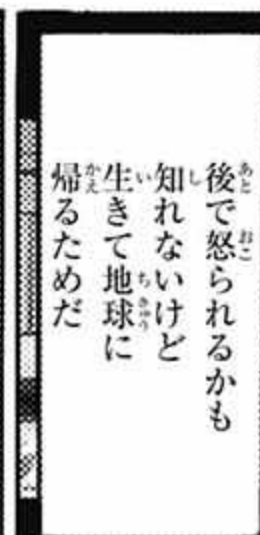 後で怒られるかも
知れないけど
生きて地球に
帰るためだ